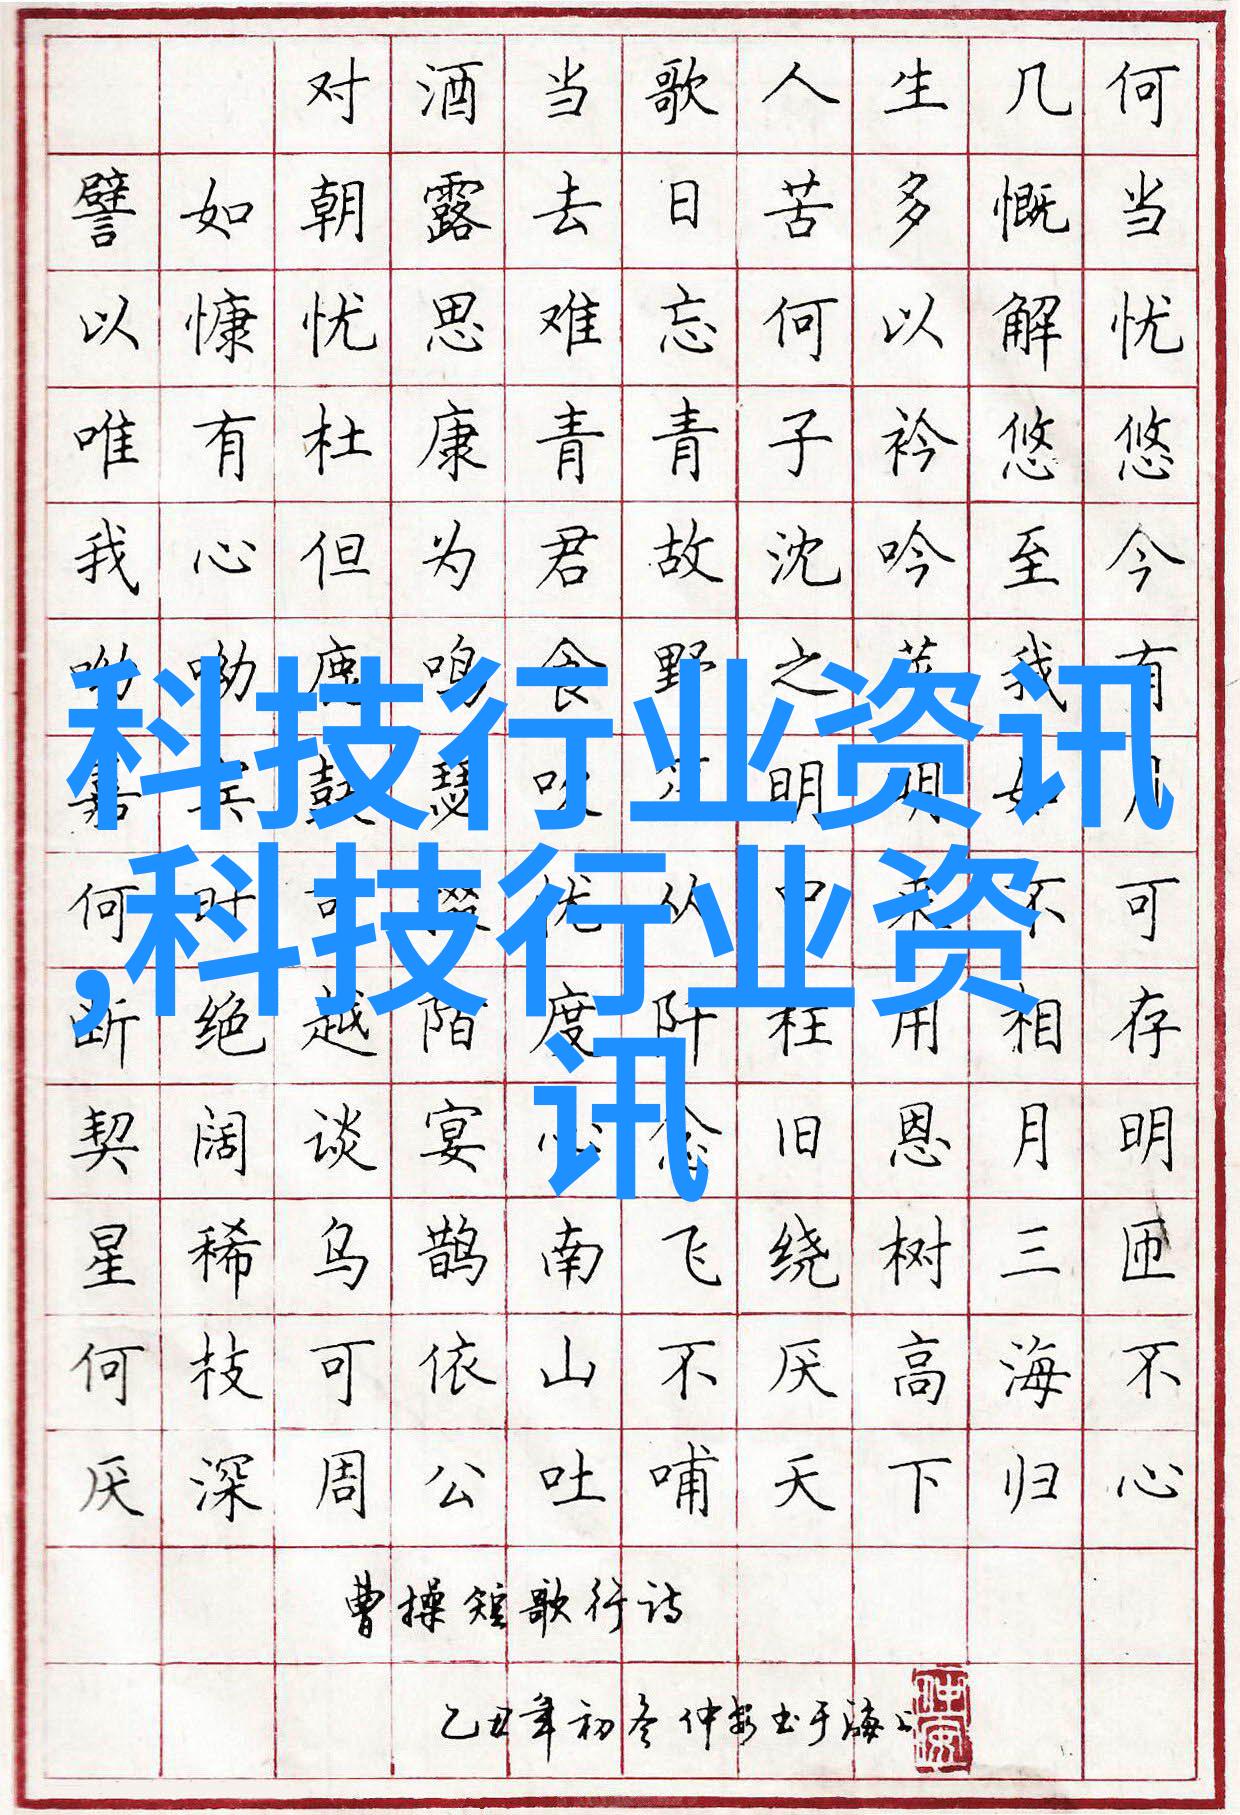 对酒当歌人生几何
譬如朝露去日苦多慨当
以慷忧思难忘何以解忧
唯有杜康青青子衿悠悠
我心但为君故沈吟至今
呦呦鹿鸣食野之苹我有
科技行业资讯
嘉宾鼓瑟吹笙明明如月
何时可掇忧从中来不可
,科技行业资
断绝越陌度阡枉用相存
讯
契阔谈宴心念旧恩月明
星稀乌鹊南飞绕树三匝
何枝可依山不厌高海不
厌深周公吐哺天下归心
曹操短歌行诗
乙丑年初冬仲安书于海上
仲安